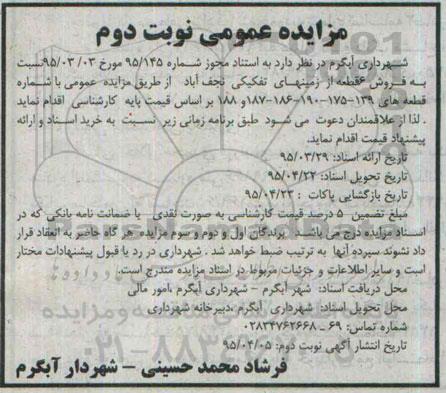 مزایده عمومی نوبت دوم
شهرداری آبگرم در نظر دارد به استناد مجوز شماره ۹۵/۱۴۵ مورخ ۹۵/۰۳/۰۳ نسبت
به فروش ۶قطعه از زمینهای تفکیکی نجف آباد از طریق مزایده عمومی با شماره
قطعه های ۱۳۹-۱۷۵-۱۹۰-۱۸۶-۱۸۷و ۱۸۸ بر اساس قیمت پایه کارشناسی اقدام نماید
. لذا از علاقمندان دعوت می شود طبق برنامه زمانی زیر نسبت به خرید اسناد و ارائه
پیشنهاد قیمت اقدام نماید.
تاریخ ارائه اسناد: ۹۵/۰۳/۲۹
تاریخ تحویل اسناد: ۹۵/۰۴/۲۲
تاریخ بازگشایی پاکات : ۹۵/۰۴/۲۳
مبلغ تضمین ۵ درصد قیمت کارشناسی به صورت نقدی یا ضمانت نامه بانکی که در
اسناد مزایده درج می باشد برندگان اول و دوم و سوم مزایده هر گاه حاضر به انعقاد قرار
داد نشوند سپرده آنها به ترتیب ضبط خواهد شد . شهرداری در رد یا قبول پیشنهادات مختار
است و سایر اطلاعات و جزئیات مربوط در اسناد مزایده مندرج است.
محل دریافت اسناد: شهر آبگرم - شهرداری آبگرم ،امور مالی
محل تحویل اسناد: شهرداری آبگرم ،دبیرخانه شهرداری
شماره تماس: ۶۹ ـ ۰۲۸۳۴۷۶۲۶۶۸
تاریخ انتشار آگهی نوبت دوم: ۹۵/۰۴/۰۵
فرشاد محمد حسینی - شهردار آبگرم